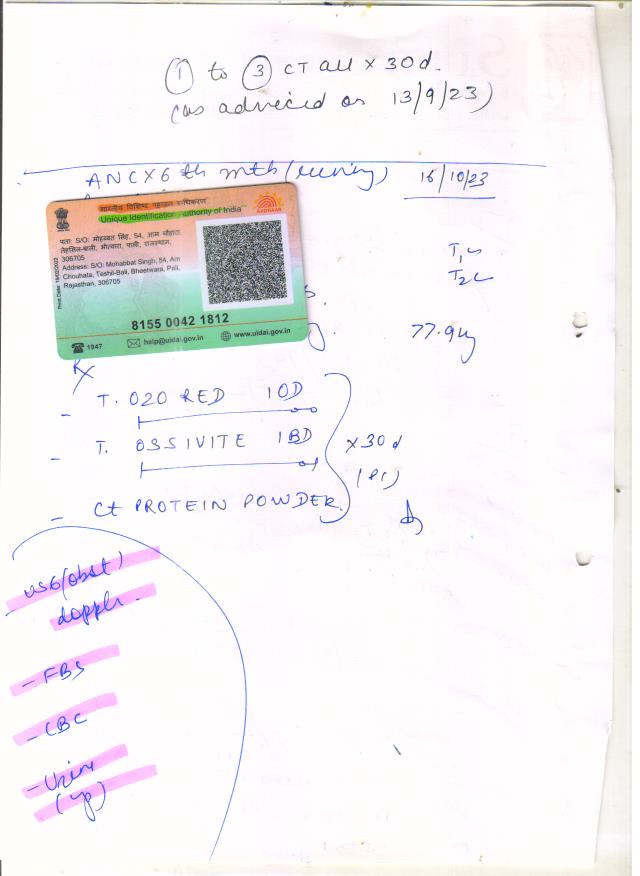 ① to ③ CT all x 30d.
(as adviced on 13/9/23)
ANC x 6th mth (running) 16/10/23
भारतीय विशिष्ट पहचान प्राधिकरण
Unique Identification Authority of India
AADHAAR
पता: S/O: मोहब्बत सिंह, 54, आम चौहटा,
306705
Address: S/O: Mohabbat Singh, 54, Am
Chouhata, Teshil-Bali, Bheetwara, Pali,
Rajasthan, 306705
8155 0042 1812
1947 help@uidai.gov.in www.uidai.gov.in
T1
T2
77.9kg
Rx
- T. O2O RED 1OD
- T. OSSIVITE 1BD
x 30d
- Ct PROTEIN POWDER.
USG (obst)
doppler.
- FBS
- CBC
- Urine